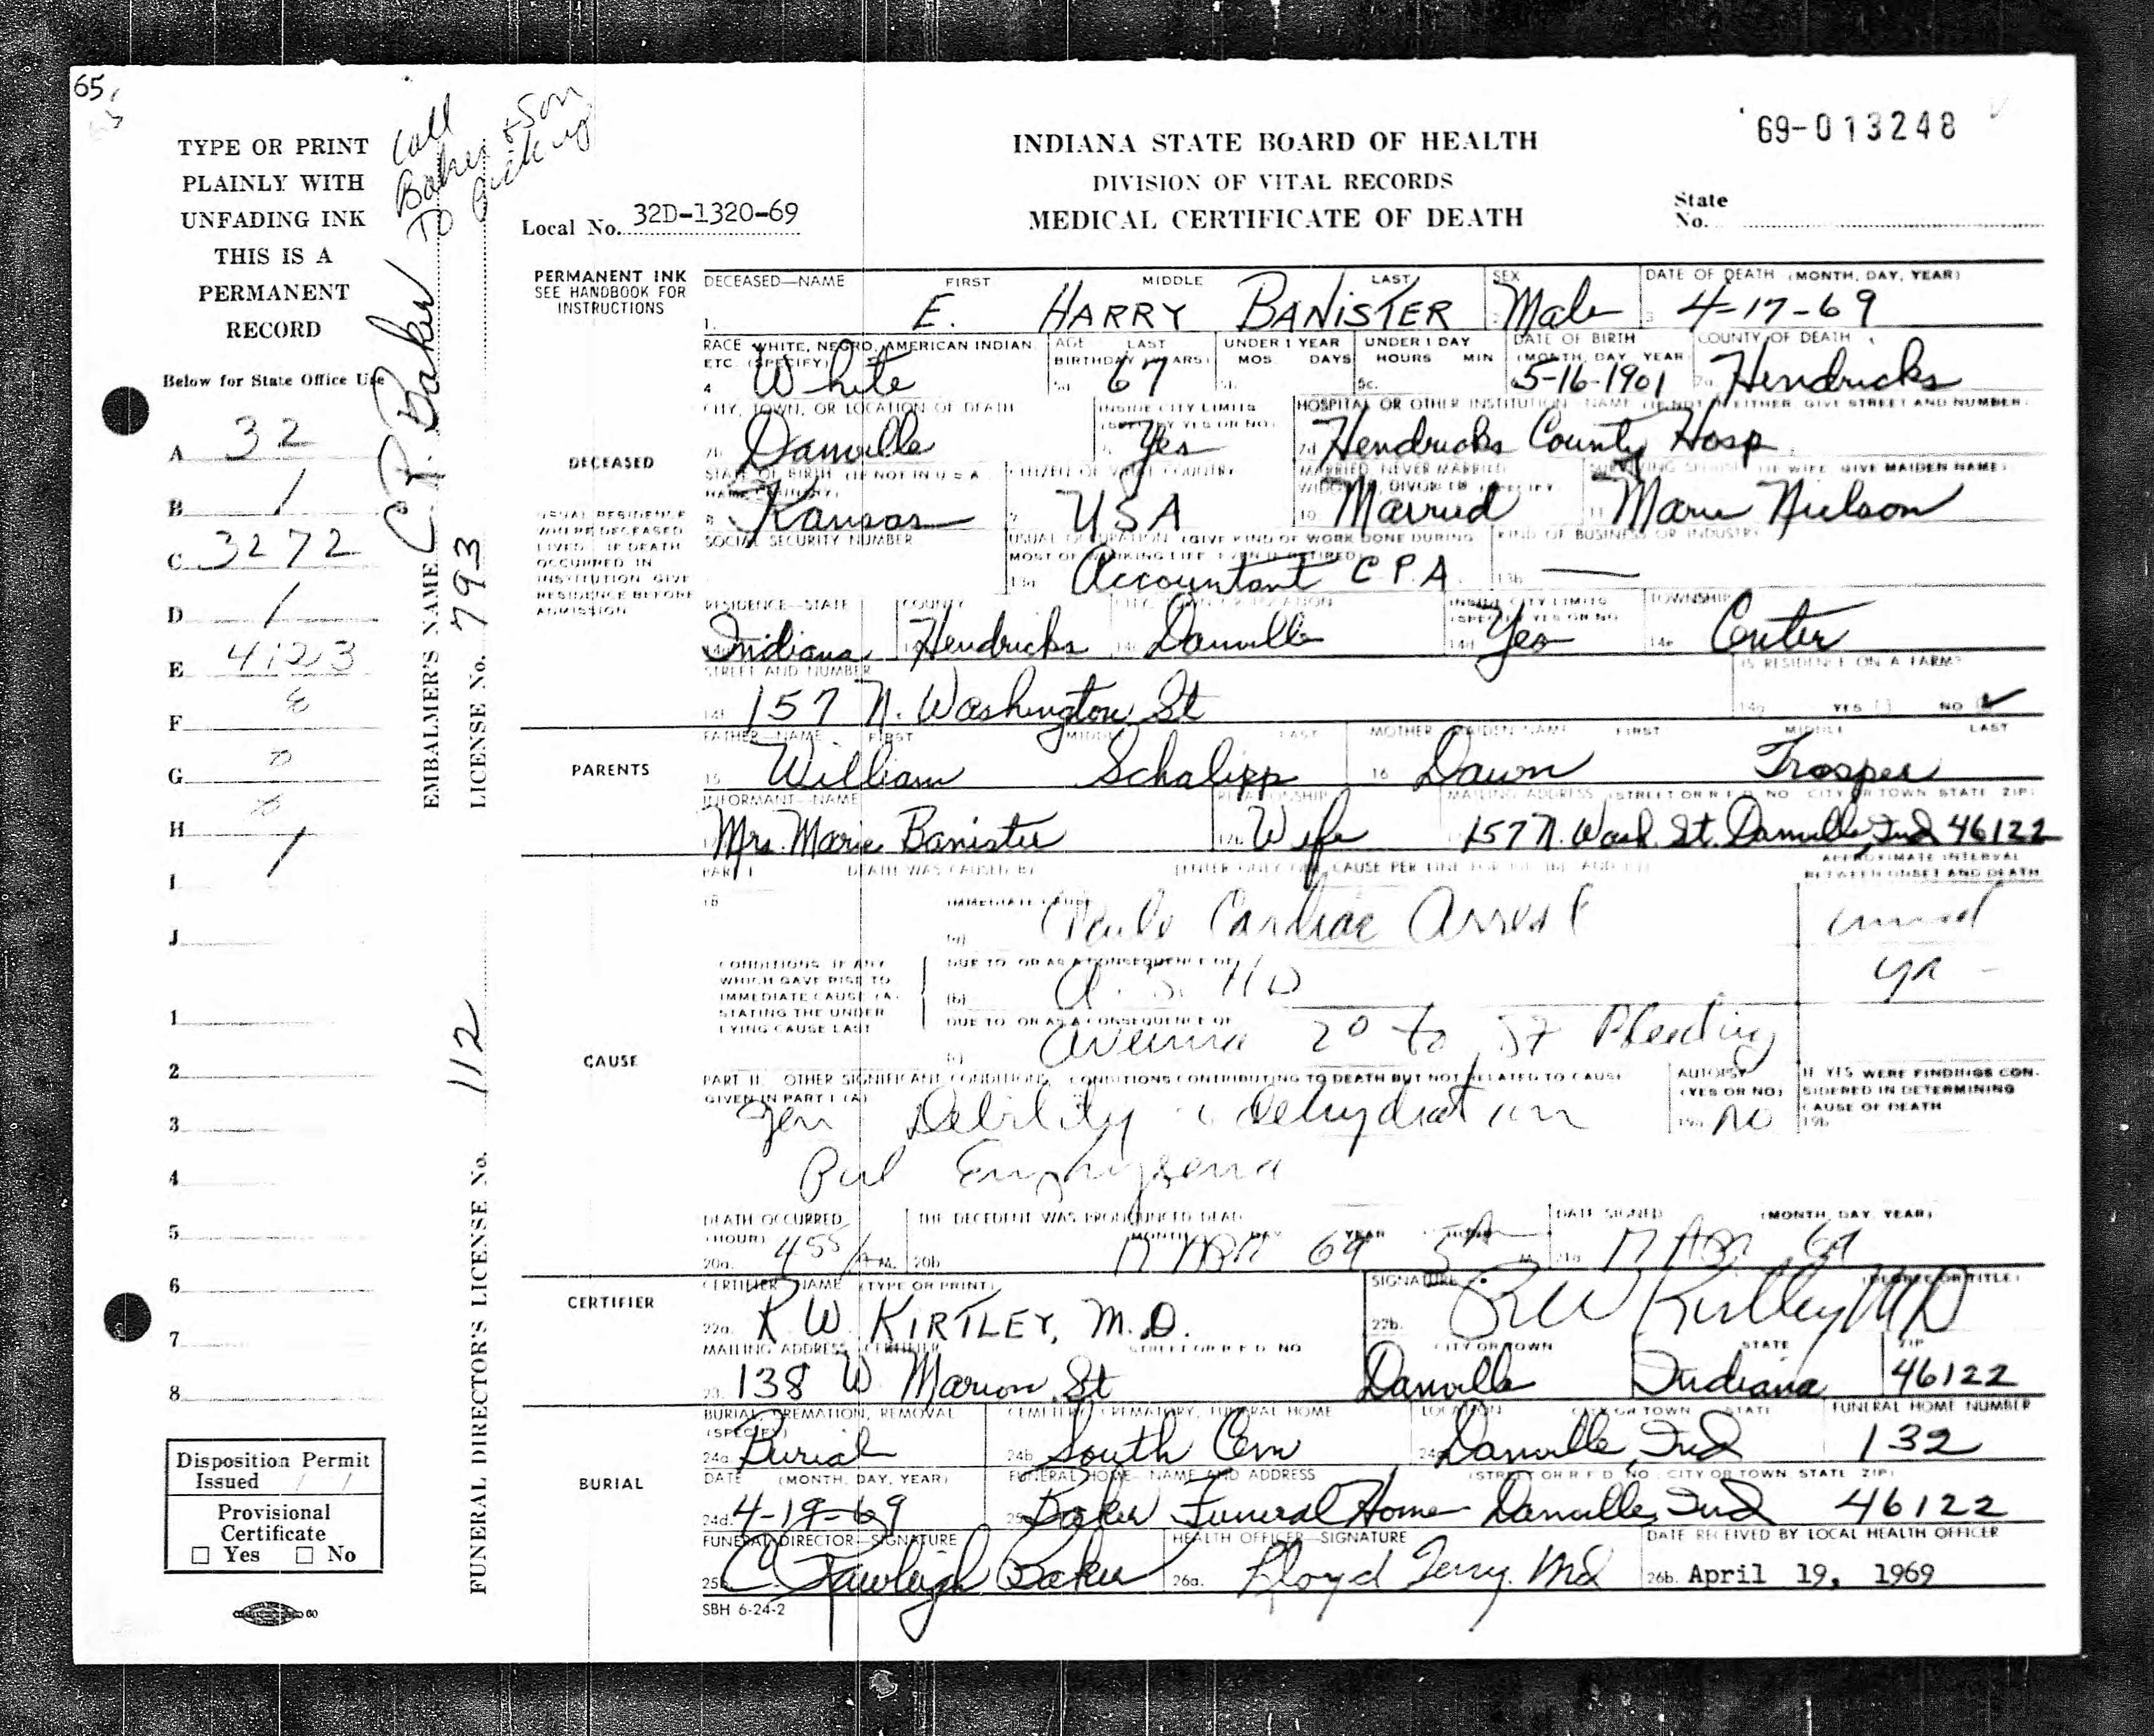 65
TYPE OR PRINT
PLAINLY WITH
UNFADING INK
THIS IS A
PERMANENT
RECORD
Below for State Office Use
A 32
B 1
C 3272
D 1
E 4123
F
G
H
I
J
1
2
3
4
5
6
7
8
Disposition Permit
Issued / /
Provisional
Certificate
☐ Yes ☐ No
Call
Baker & Son
To Pick up
EMBALMER'S NAME C. R. Baker
LICENSE No. 793
FUNERAL DIRECTOR'S LICENSE No. 112
INDIANA STATE BOARD OF HEALTH
DIVISION OF VITAL RECORDS
MEDICAL CERTIFICATE OF DEATH
69-013248
State
No.
Local No. 32D-1320-69
PERMANENT INK
SEE HANDBOOK FOR
INSTRUCTIONS
DECEASED—NAME FIRST MIDDLE LAST SEX DATE OF DEATH (MONTH, DAY, YEAR)
1. E. HARRY BANISTER Male 3 4-17-69
RACE WHITE, NEGRO, AMERICAN INDIAN ETC. (SPECIFY) AGE LAST BIRTHDAY (YEARS) UNDER 1 YEAR MOS. DAYS UNDER 1 DAY HOURS MIN DATE OF BIRTH (MONTH, DAY, YEAR COUNTY OF DEATH
4 White 5a 67 5c. 5-16-1901 7a Hendricks
CITY, TOWN, OR LOCATION OF DEATH INSIDE CITY LIMITS (SPECIFY YES OR NO) HOSPITAL OR OTHER INSTITUTION NAME (IF NOT IN EITHER GIVE STREET AND NUMBER)
DECEASED
7b Danville Yes 7d Hendricks County Hosp
STATE OF BIRTH (IF NOT IN U S A NAME COUNTRY) CITIZEN OF WHAT COUNTRY MARRIED, NEVER MARRIED WIDOWED, DIVORCED (SPECIFY) SURVIVING SPOUSE (IF WIFE GIVE MAIDEN NAME)
8 Kansas 9 USA 10 Married 11 Marie Nielson
USUAL RESIDENCE
WHERE DECEASED
LIVED IF DEATH
OCCURRED IN
INSTITUTION GIVE
RESIDENCE BEFORE
ADMISSION
SOCIAL SECURITY NUMBER USUAL OCCUPATION (GIVE KIND OF WORK DONE DURING MOST OF WORKING LIFE EVEN IF RETIRED) KIND OF BUSINESS OR INDUSTRY
13a Accountant C P. A. 13b —
RESIDENCE—STATE COUNTY CITY, TOWN OR LOCATION INSIDE CITY LIMITS (SPECIFY YES OR NO TOWNSHIP
Indiana Hendricks 14c Danville 14d Yes 14e Center
STREET AND NUMBER IS RESIDENCE ON A FARM?
14f 157 N. Washington St 14g YES [ ] NO [✓]
FATHER—NAME FIRST MIDDLE LAST MOTHER MAIDEN NAME FIRST MIDDLE LAST
PARENTS
15 William Schalipp 16 Dawn Trosper
INFORMANT—NAME RELATIONSHIP MAILING ADDRESS (STREET OR R F D NO CITY OR TOWN STATE ZIP)
Mrs. Marie Banister 17b Wife 157 N. Wash. St. Danville, Ind 46122
PART I DEATH WAS CAUSED BY (ENTER ONLY ONE CAUSE PER LINE FOR (a) (b) AND (c)) APPROXIMATE INTERVAL BETWEEN ONSET AND DEATH
18 IMMEDIATE CAUSE
(a) Cardiac Arrest
CONDITIONS IF ANY
WHICH GAVE RISE TO
IMMEDIATE CAUSE (A)
STATING THE UNDER
LYING CAUSE LAST
DUE TO OR AS A CONSEQUENCE OF
(b) A. S. HD
DUE TO OR AS A CONSEQUENCE OF
CAUSE
(c) 2° to Bleeding
PART II OTHER SIGNIFICANT CONDITIONS CONDITIONS CONTRIBUTING TO DEATH BUT NOT RELATED TO CAUSE GIVEN IN PART I (A) AUTOPSY (YES OR NO) IF YES WERE FINDINGS CONSIDERED IN DETERMINING CAUSE OF DEATH
Gen Debility dehydration 19a No 19b
Pul Emphysema
DEATH OCCURRED (HOUR) THE DECEDENT WAS PRONOUNCED DEAD MONTH DAY YEAR HOUR DATE SIGNED (MONTH, DAY, YEAR)
20a. 455 A M. 20b 17 APR 69 5 A M. 21a 17 Apr 69
CERTIFIER NAME (TYPE OR PRINT) SIGNATURE (DEGREE OR TITLE)
CERTIFIER
22a. R W. KIRTLEY, M.D. 22b. RW Kirtley MD
MAILING ADDRESS CERTIFIER STREET OR R F D NO CITY OR TOWN STATE ZIP
23. 138 W Marion St Danville Indiana 46122
BURIAL, CREMATION, REMOVAL (SPECIFY) CEMETERY, CREMATORY, FUNERAL HOME LOCATION CITY OR TOWN STATE FUNERAL HOME NUMBER
24a Burial 24b South Cem Danville, Ind 132
BURIAL
DATE (MONTH, DAY, YEAR) FUNERAL HOME—NAME AND ADDRESS (STREET OR R F D NO CITY OR TOWN STATE ZIP)
24d. 4-19-69 Baker Funeral Home Danville, Ind 46122
FUNERAL DIRECTOR—SIGNATURE HEALTH OFFICER—SIGNATURE DATE RECEIVED BY LOCAL HEALTH OFFICER
25b C Rawleigh Baker 26a. Lloyd Terry. Md 26b. April 19, 1969
SBH 6-24-2